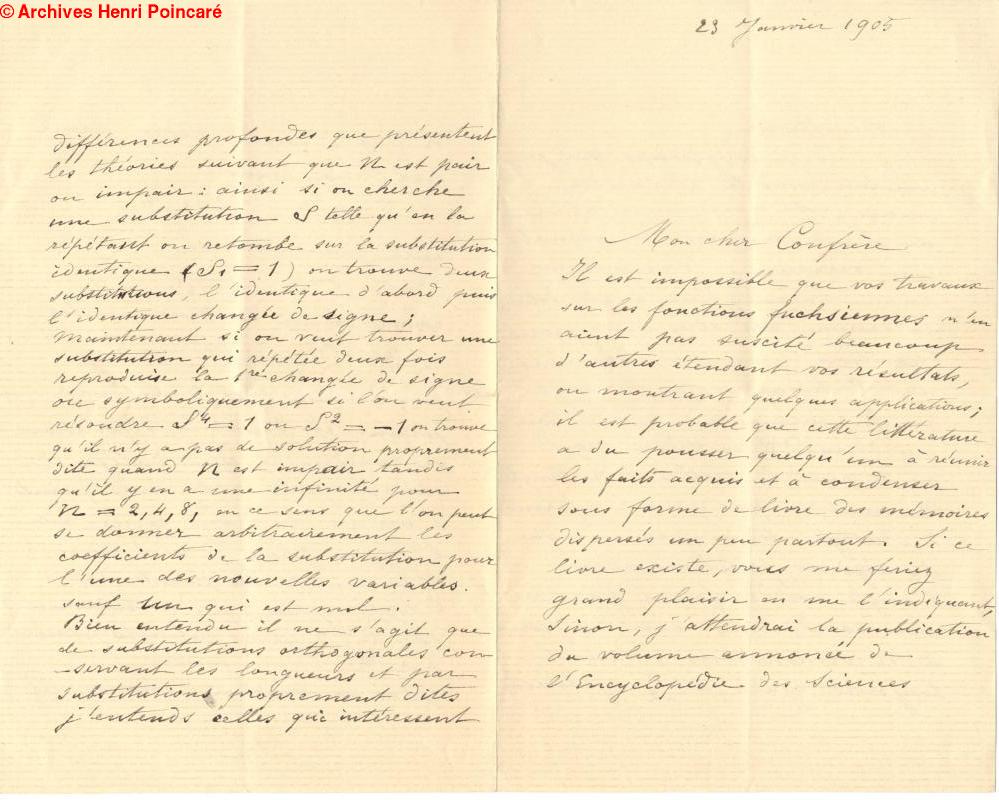 © Archives Henri Poincaré
23 Janvier 1905
Mon cher Confrère
Il est impossible que vos travaux
sur les fonctions fuchsiennes n'en
aient pas suscité beaucoup
d'autres étendant vos résultats,
ou montrant quelques applications ;
il est probable que cette littérature
a du pousser quelqu'un à réunir
les faits acquis et à condenser
sous forme de livre des mémoires
dispersés un peu partout. Si ce
livre existe, vous me feriez
grand plaisir en me l'indiquant,
Sinon, j'attendrai la publication
du volume annoncé de
l'Encyclopédie des Sciences
différences profondes que présentent
les théories suivant que n est pair
ou impair : ainsi si on cherche
une substitution S telle qu'en la
répétant on retombe sur la substitution
identique (S₁ = 1) on trouve deux
substitutions, l'identique d'abord puis
l'identique changée de signe ;
maintenant si on veut trouver une
substitution qui répétée deux fois
reproduise la 1re changée de signe
ou symboliquement si l'on veut
résoudre S⁴ = 1 ou S² = -1 on trouve
qu'il n'y a pas de solution proprement
dite quand n est impair tandis
qu'il y en a une infinité pour
n = 2, 4, 8, en ce sens que l'on peut
se donner arbitrairement les
coefficients de la substitution pour
l'une des nouvelles variables.
sauf un qui est nul.
Bien entendu il ne s'agit que
de substitutions orthogonales con
-servant les longueurs et par
substitutions proprement dites
j'entends celles qui intéressent